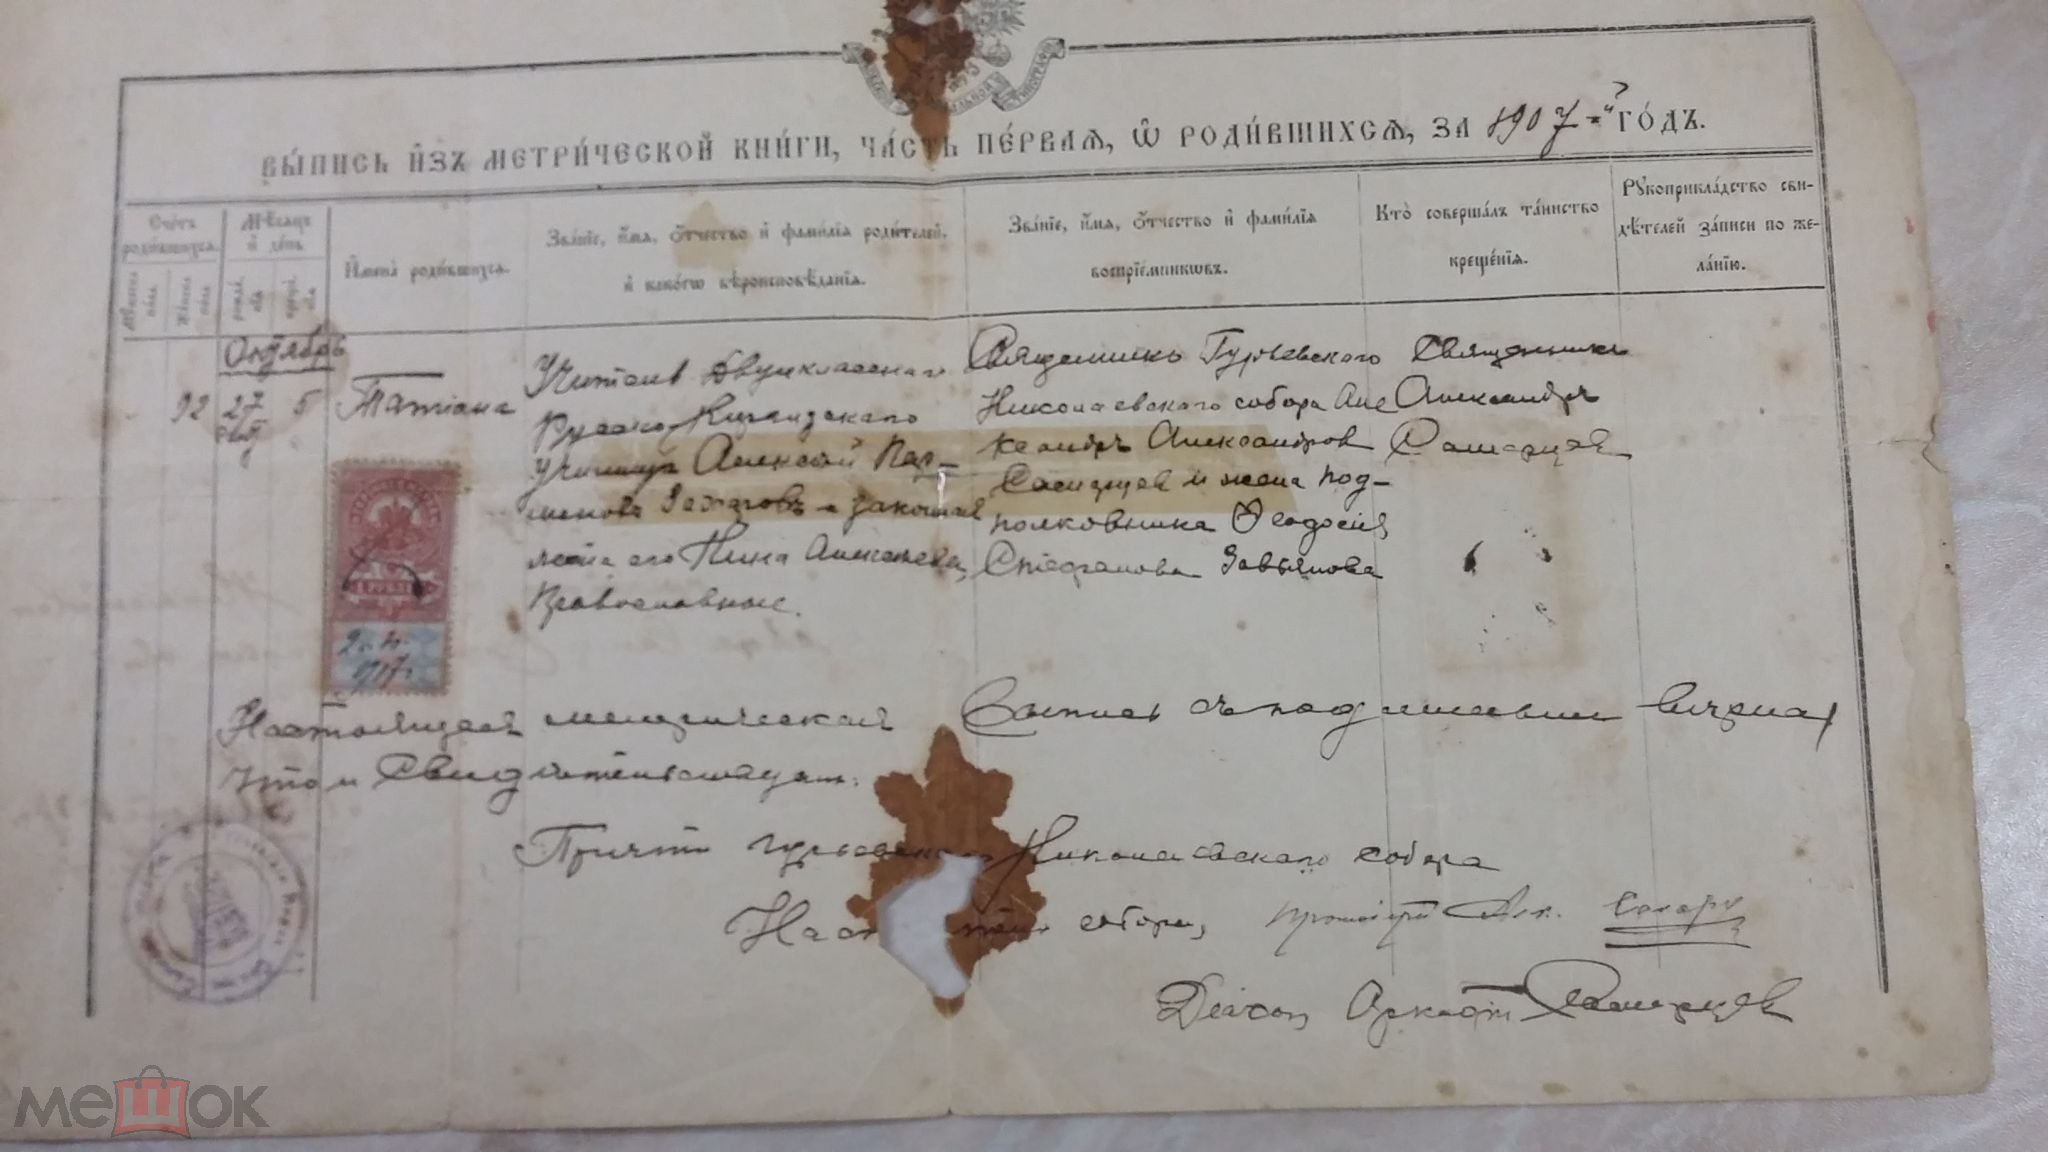 ВЫ́ПИСЬ И҆ЗЪ МЕТРИ́ЧЕСКОЙ КНИ́ГИ, ЧА́СТЬ ПЕ́РВАѦ, Ѡ҆ РОДИ́ВШИХСѦ, ЗА 1907-й ГО́ДЪ.
Сче́тъ роди́вшихсѧ.
Мꙋ́жеска по́ла.
Же́нска по́ла.
Мѣ́сѧцъ и҆ де́нь
рожде́нїѧ
креще́нїѧ.
И҆мена̀ роди́вшихсѧ.
Зва́нїе, и҆́мѧ, ѻ҆́тчество и҆ фами́лїѧ роди́телей,
и҆ како́гѡ вѣроисповѣ́данїѧ.
Зва́нїе, и҆́мѧ, ѻ҆́тчество и҆ фами́лїѧ
воспрїе́мникѡвъ.
Кто̀ соверша́лъ та́инство
креще́нїѧ.
Рꙋкоприкла́дство сви-
дѣ́телей за́писи по же-
ла́нїю.
Октябрь
92 27 5 Татіана
Учитель Двухкласснаго
Русско-Киргизскаго
училища Алексѣй
Захаровъ и законная
жена его Нина Алексѣева,
Православные.
Священникъ Гурьевскаго
Николаевскаго собора Але
ксандръ Александров
и жена под-
полковника Ѳеодосія
Стефанова Завьялова
Священникъ
Александръ
1 РУБЛЬ
1917 г.
Настоящая метрическая Выпись съ подлиннымъ вѣрна,
что и Свидѣтельствуетъ:
Причтъ Гурьевскаго Николаевскаго собора
собора, протоіерей Ал.
Діаконъ Аркадій
мешок